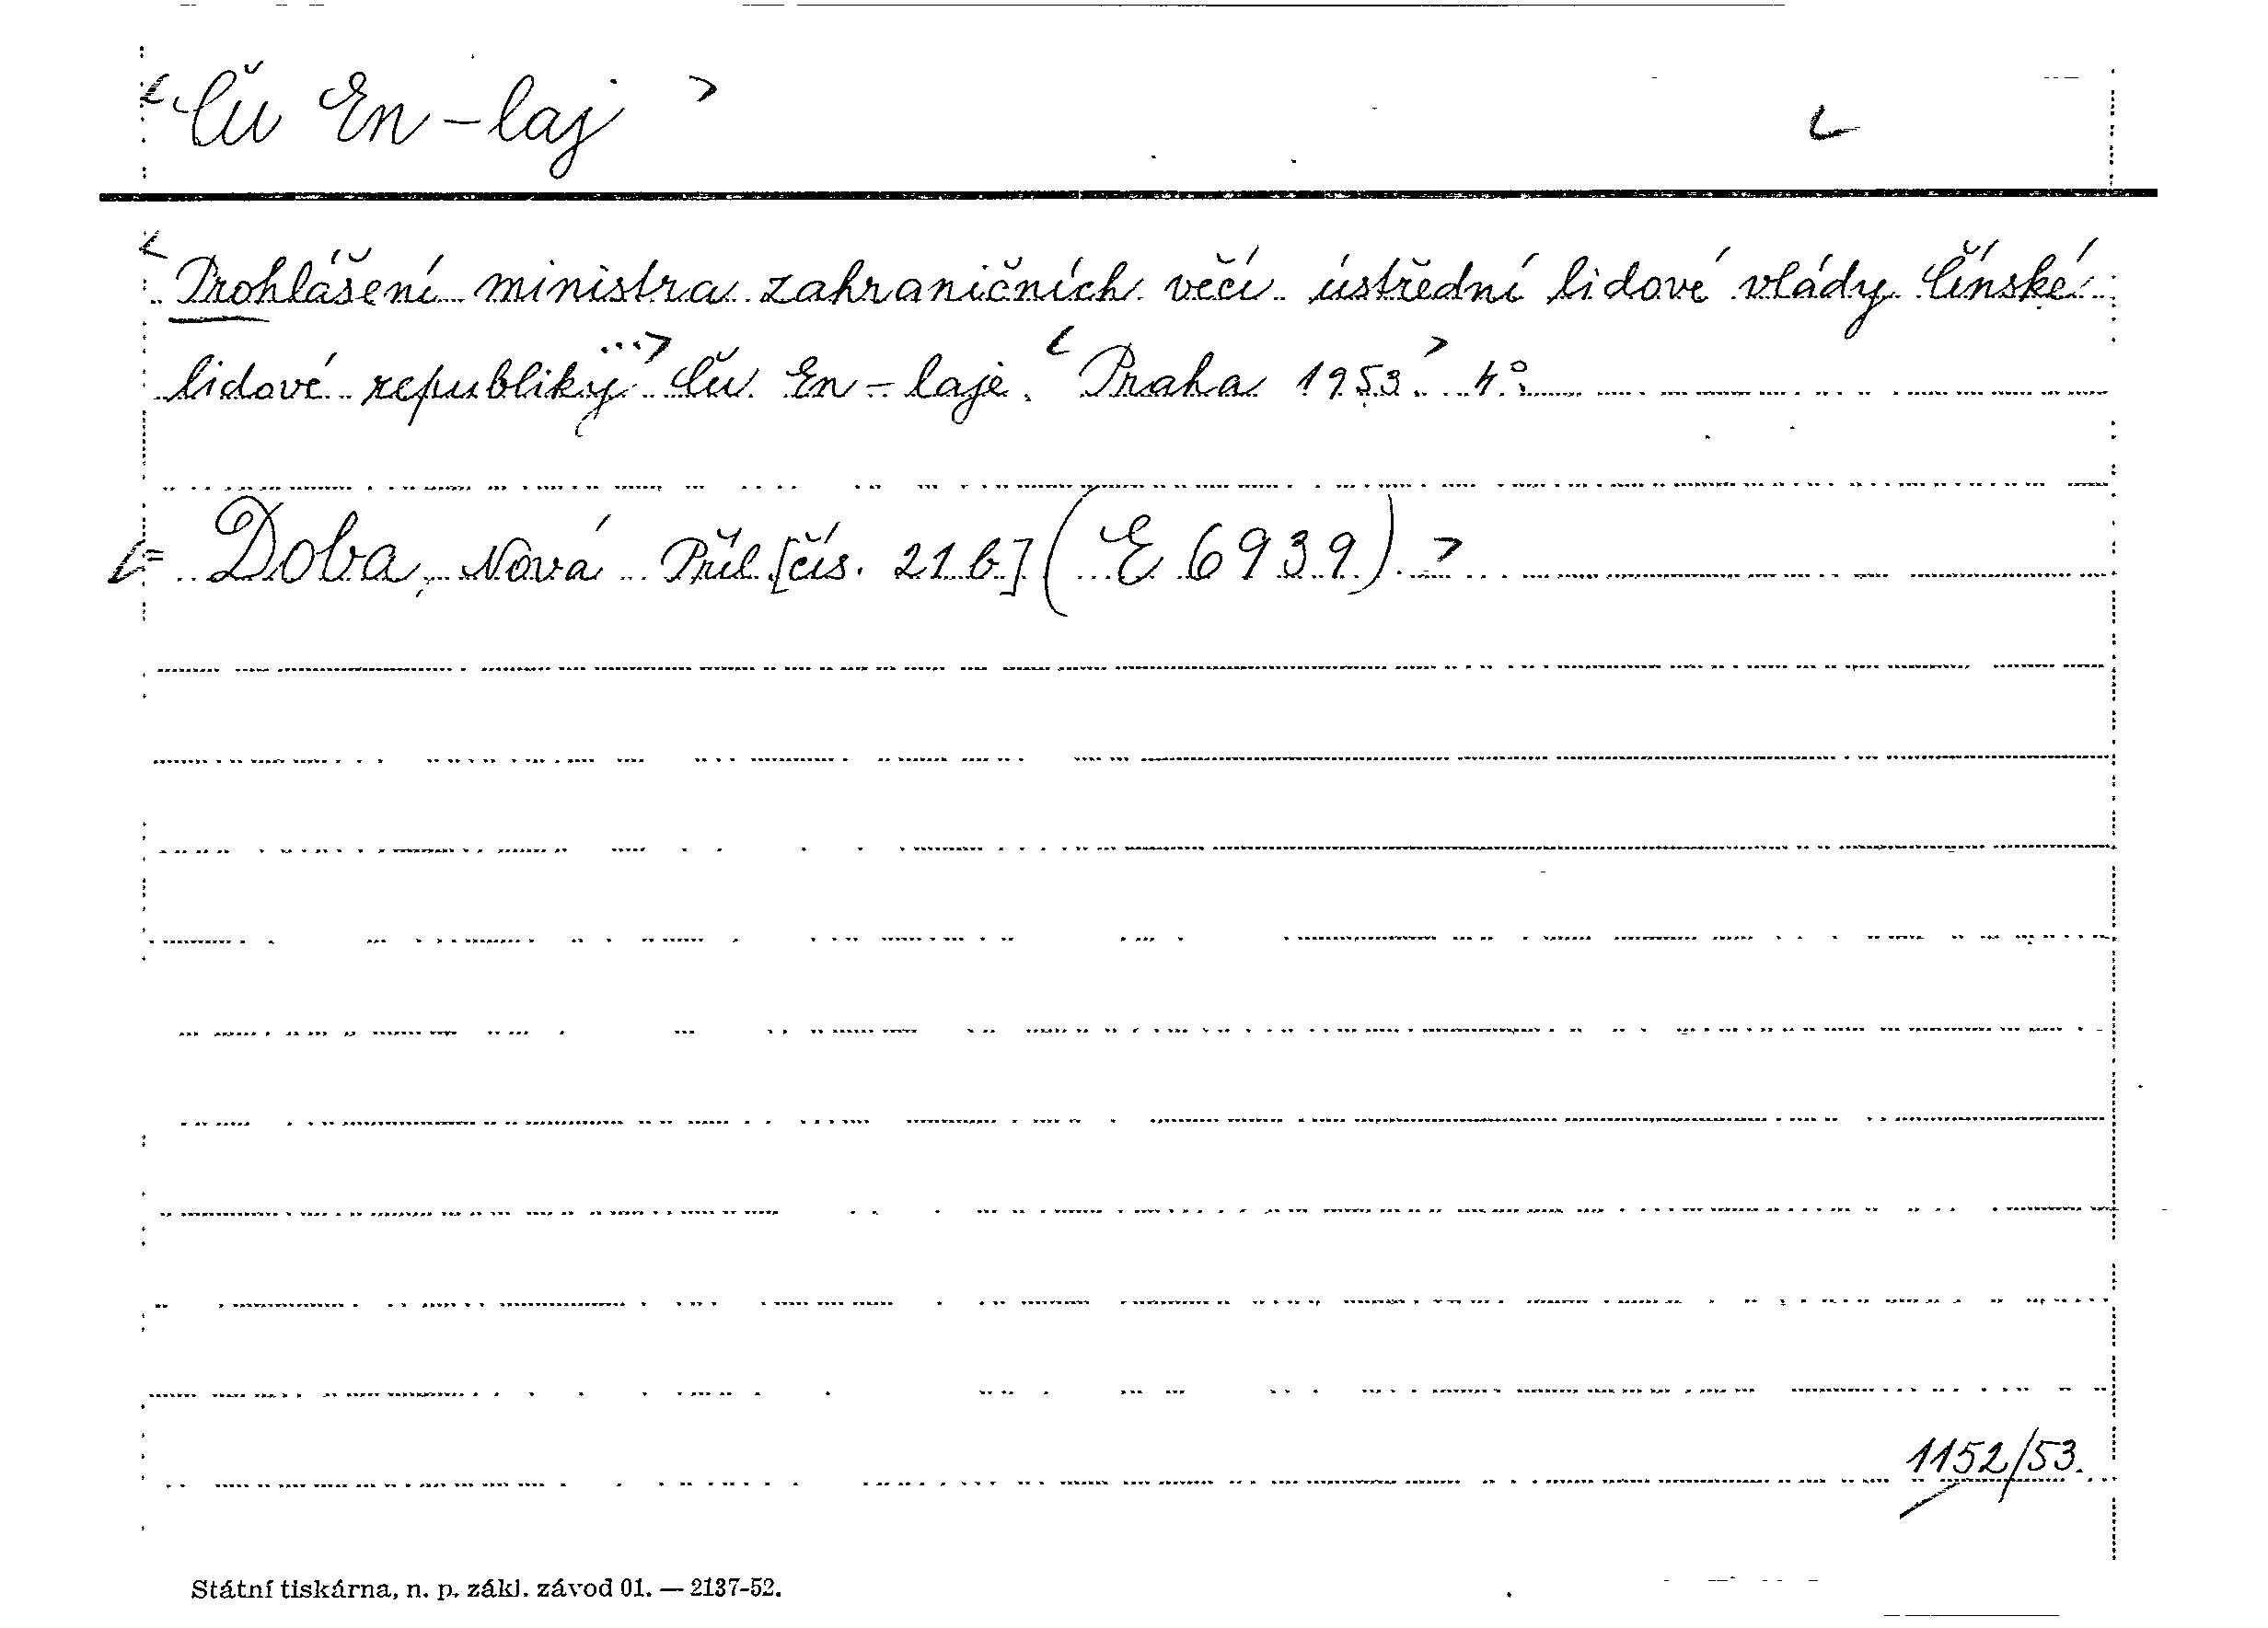 <Ču En-laj>
<Prohlášení ministra zahraničních věcí ústřední lidové vlády Čínské
lidové republiky...> Ču En-laje. <Praha 1953.> 4°.
<= Doba, Nová Příl. [čís. 21b] (E 6939).>
1152/53.
Státní tiskárna, n. p. zákl. závod 01. — 2137-52.